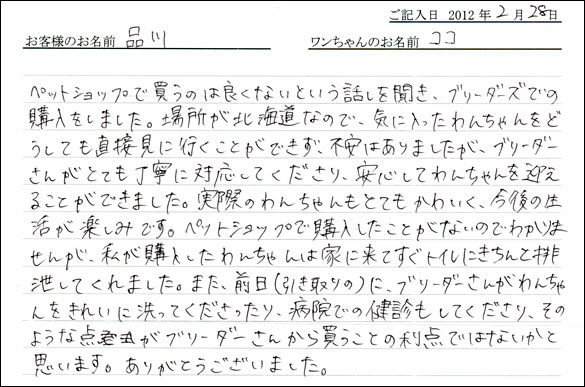 ご記入日 2012年2月28日
お客様のお名前 品川 ワンちゃんのお名前 ココ
ペットショップで買うのは良くないという話しを聞き、ブリーダーズでの
購入をしました。場所が北海道なので、気に入ったわんちゃんをど
うしても直接見に行くことができず、不安はありましたが、ブリーダー
さんがとても丁寧に対応してくださり、安心してわんちゃんを迎え
ることができました。実際のわんちゃんもとてもかわいく、今後の生
活が楽しみです。ペットショップで購入したことがないのでわかりま
せんが、私が購入したわんちゃんは家に来てすぐトイレにきちんと排
泄してくれました。また、前日(引き取りの)に、ブリーダーさんがわんちゃ
んをきれいに洗ってくださったり、病院での健診もしてくださり、その
ような点がブリーダーさんから買うことの利点ではないかと
思います。ありがとうございました。